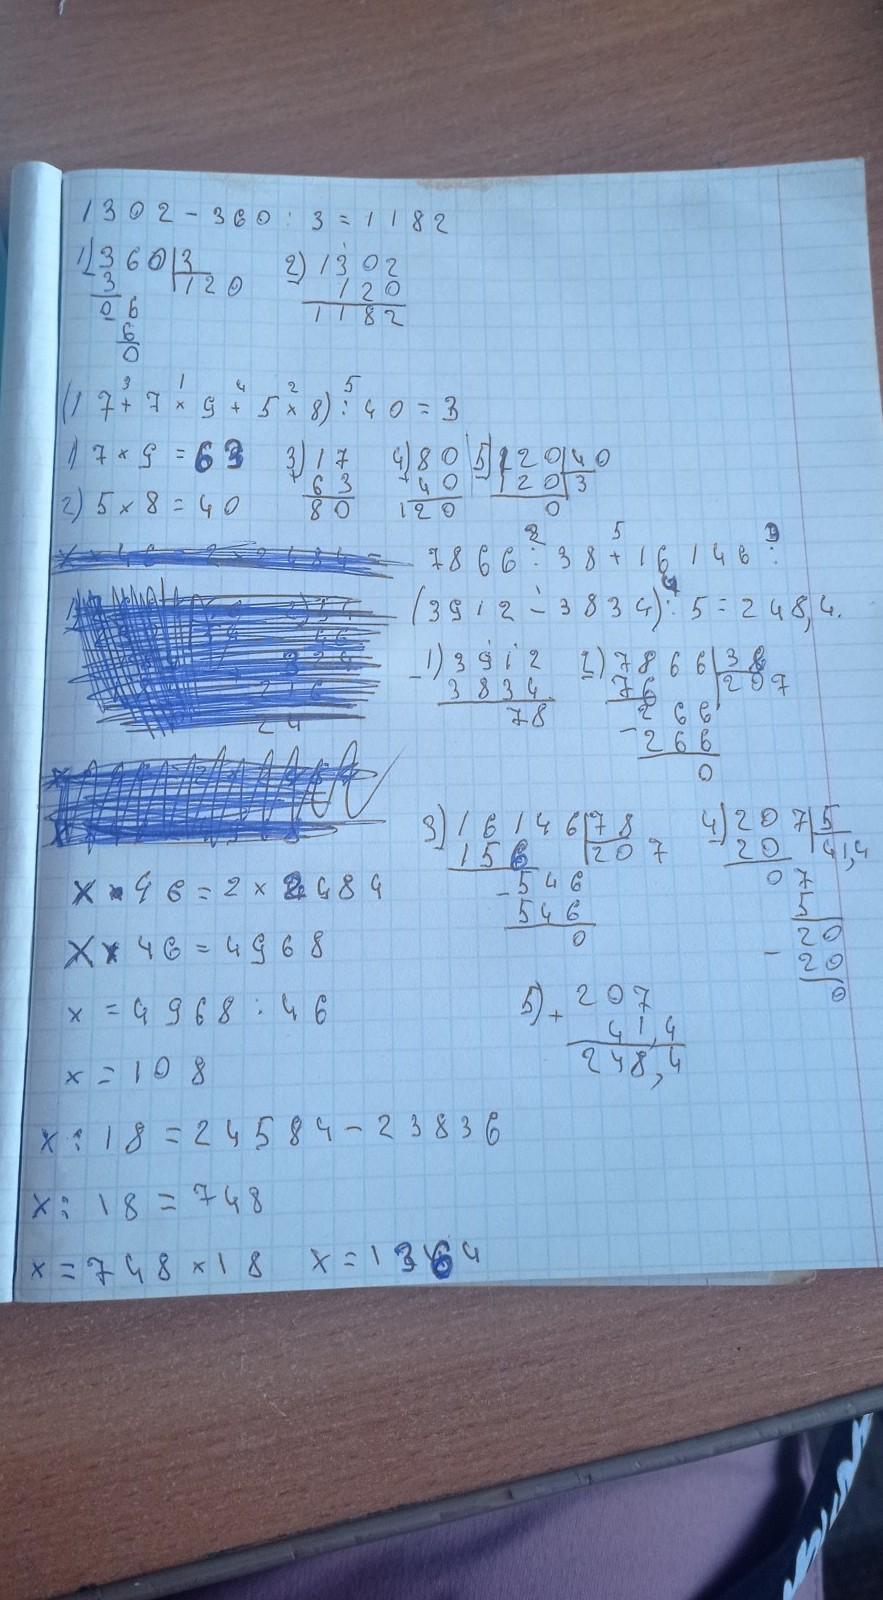 1302 - 360 : 3 = 1182
1) 360 | 3      2) 1302
3   120      120
06      1182
6
0
3 1 4 2 5
(17 + 7 × 9 + 5 × 8) : 40 = 3
1) 7 × 9 = 63   3) 17   4) 80   5) 120 | 40
+ 63   + 40   120   3
2) 5 × 8 = 40   80   120   0
2 5 3
7866 : 38 + 16146 :
1 4
(3912 - 3834) : 5 = 248,4.
- 1) 3912   2) 7866 | 38
3834   76   207
78   266
- 266
0
3) 16146 | 78   4) 207 | 5
156   207   20   41,4
- 546   07
546   5
0   20
- 20
0
5) + 207
41,4
248,4
x × 46 = 2 × 2484
x × 46 = 4968
x = 4968 : 46
x = 108
x : 18 = 24584 - 23836
x : 18 = 748
x = 748 × 18   x = 1364